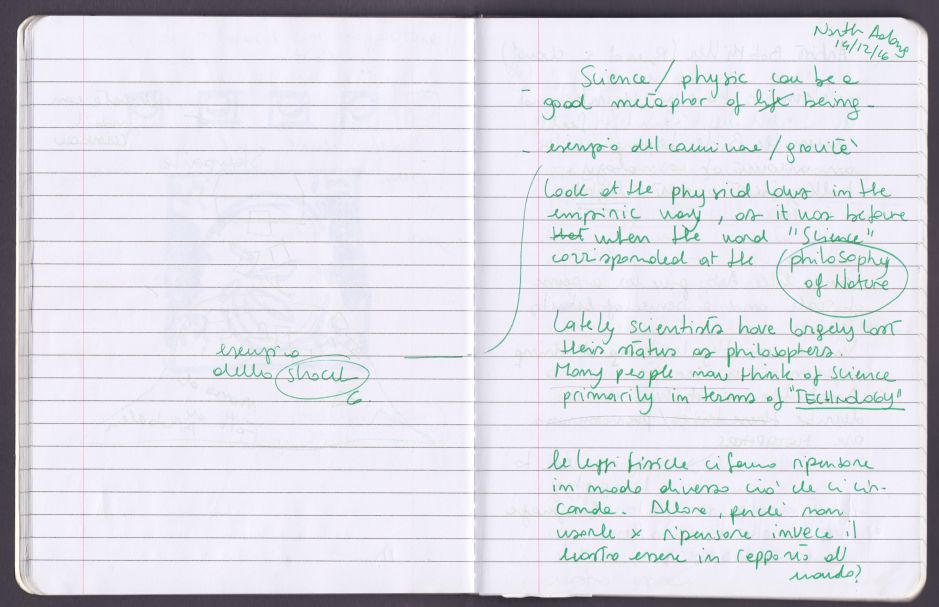 esempio
dello shock
North Adams
14/12/16
- Science / physic can be a
good metaphor of life being.
- esempio del camminare / gravità
Look at the physical laws in the
empiric way, as it was before
that when the word "Science"
corrisponded at the philosophy
of Nature
Lately scientists have largely lost
their status as philosophers.
Many people now think of science
primarily in terms of "TECHNOLOGY"
le leggi fisiche ci fanno ripensare
in modo diverso ciò che ci cir-
conda. Allora, perché non
usarle x ripensare invece il
nostro essere in rapporto al
mondo?